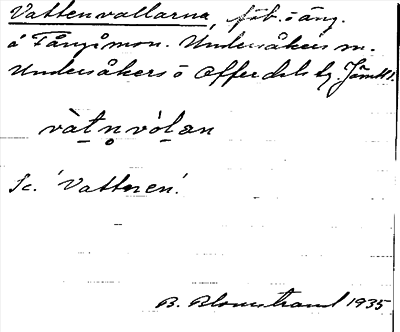 Vattenvallarna, fäb. o äng.
å Tångömon. Undersåkers sn.
Undersåkers o Offerdals tg. Jämtl.
vàt̠n̥vòl̠an
Sc. 'Vattnen'.
B. Blomstrand 1935